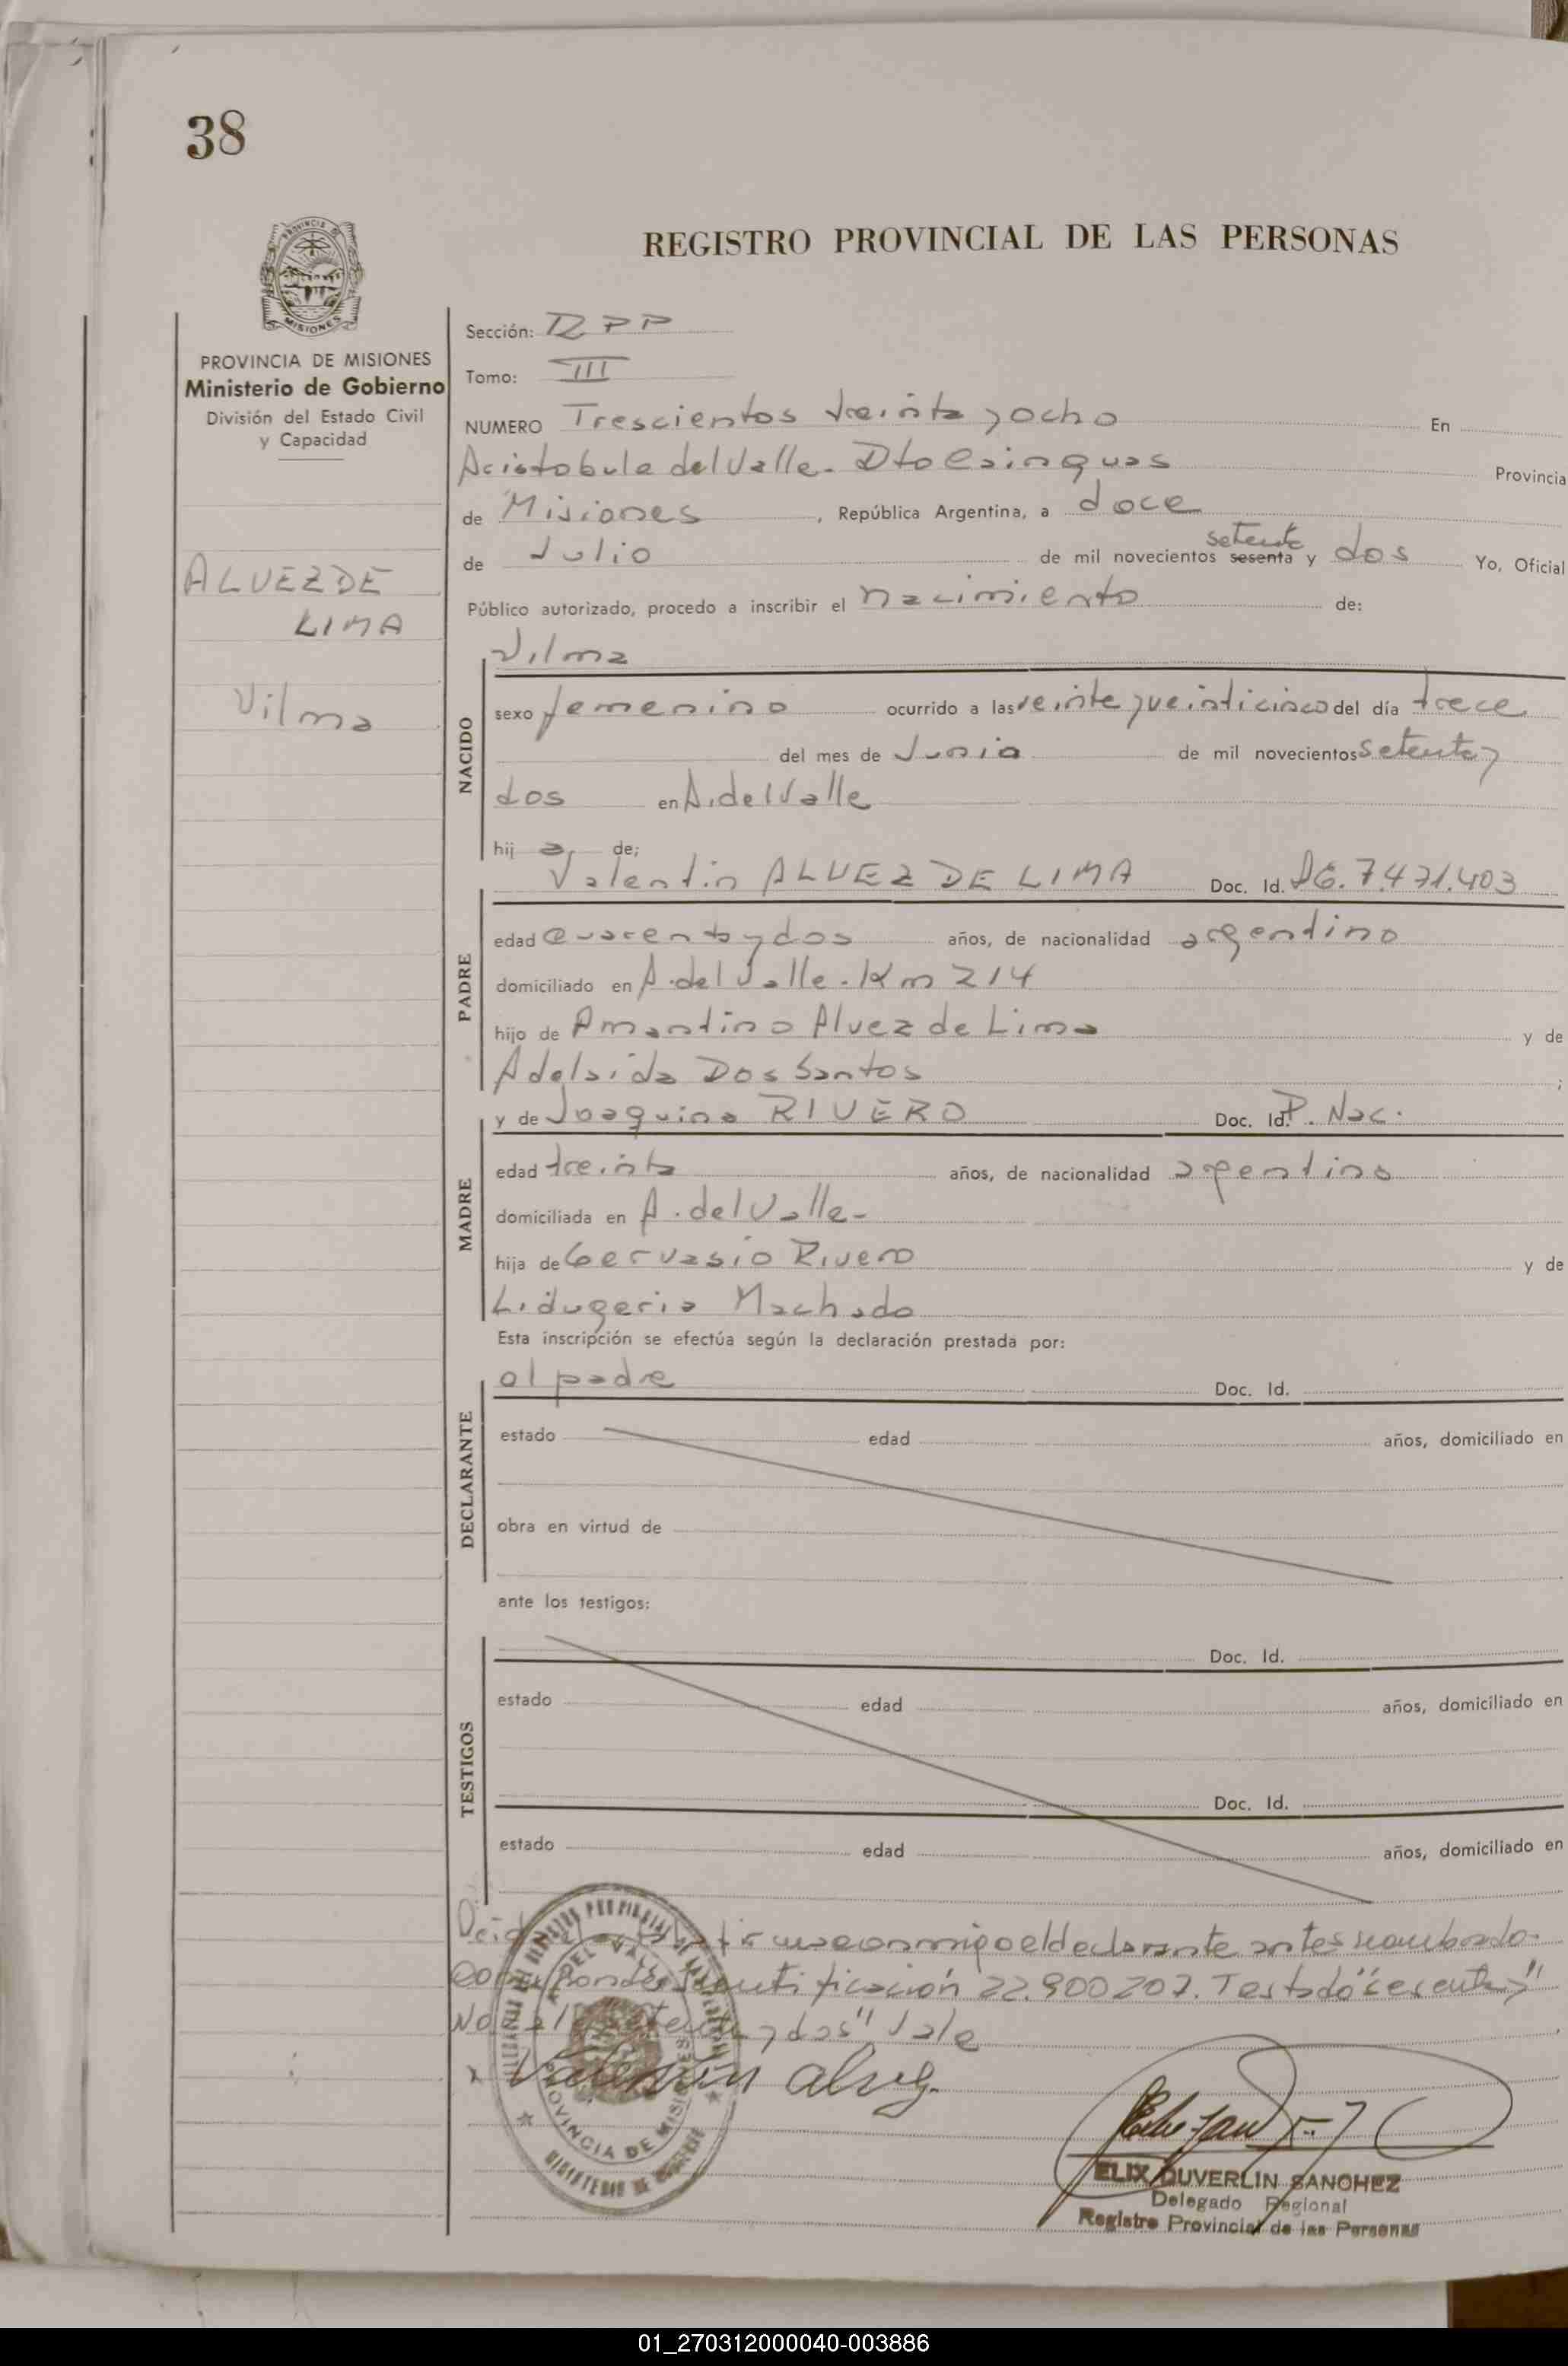 38
REGISTRO PROVINCIAL DE LAS PERSONAS
PROVINCIA DE MISIONES
Ministerio de Gobierno
División del Estado Civil
y Capacidad
ALVEZ DE
LIMA
Vilma
Sección: RPP
Tomo: III
NUMERO Trescientos treinta y ocho En
Aristobulo del Valle. Dto Cainguas Provincia
de Misiones, República Argentina, a doce
setenta
de Julio de mil novecientos sesenta y dos Yo, Oficial
Público autorizado, procedo a inscribir el nacimiento de:
Vilma
NACIDO
sexo femenino ocurrido a las veinte y veinticinco del día trece
del mes de Junio de mil novecientos setenta y
dos en A. del Valle
hij a de;
Valentin ALVEZ DE LIMA Doc. Id. 7.471.403
PADRE
edad cuarenta y dos años, de nacionalidad argentino
domiciliado en A. del Valle. Km 214
hijo de Amantino Alvez de Lima y de
Adelaida Dos Santos ;
y de Joaquina RIVERO Doc. Id. P. Nac.
MADRE
edad treinta años, de nacionalidad argentina
domiciliada en A. del Valle-
hija de Gervasio Rivero y de
Lidugeria Machado
Esta inscripción se efectúa según la declaración prestada por:
el padre Doc. Id.
DECLARANTE
estado edad años, domiciliado en
obra en virtud de
ante los testigos:
TESTIGOS
Doc. Id.
estado edad años, domiciliado en
Doc. Id.
estado edad años, domiciliado en
conmigo el declarante antes nombrado.
22.900207. Testado "sesenta y"
y dos" Vale
Valentin Alvez.
PROVINCIA DE MISIONES
ELIX DUVERLIN SANCHEZ
Delegado Regional
Registro Provincial de las Personas
01_270312000040-003886